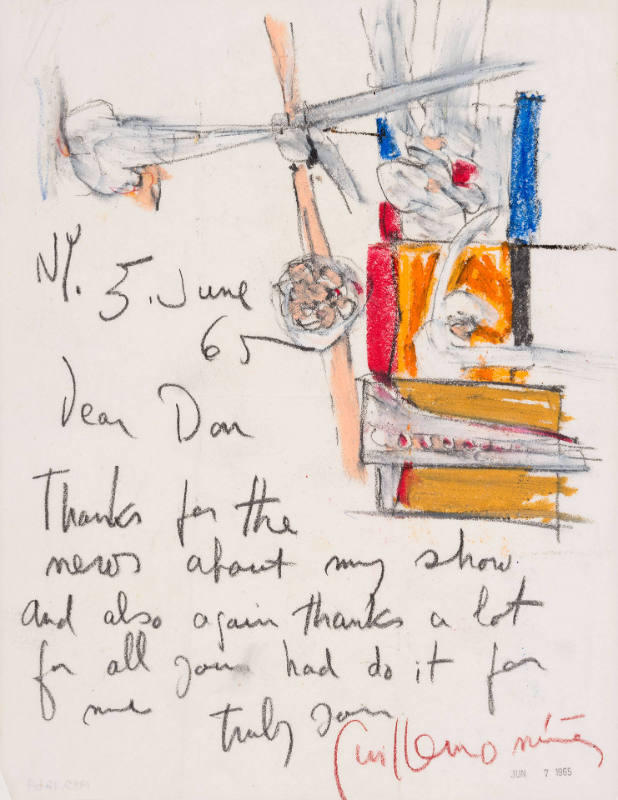 NY. 5. June
65
Dear Don
Thanks for the
news about my show
and also again thanks a lot
for all your had do it for
me truly your
Guillermo núñez
JUN 7 1965